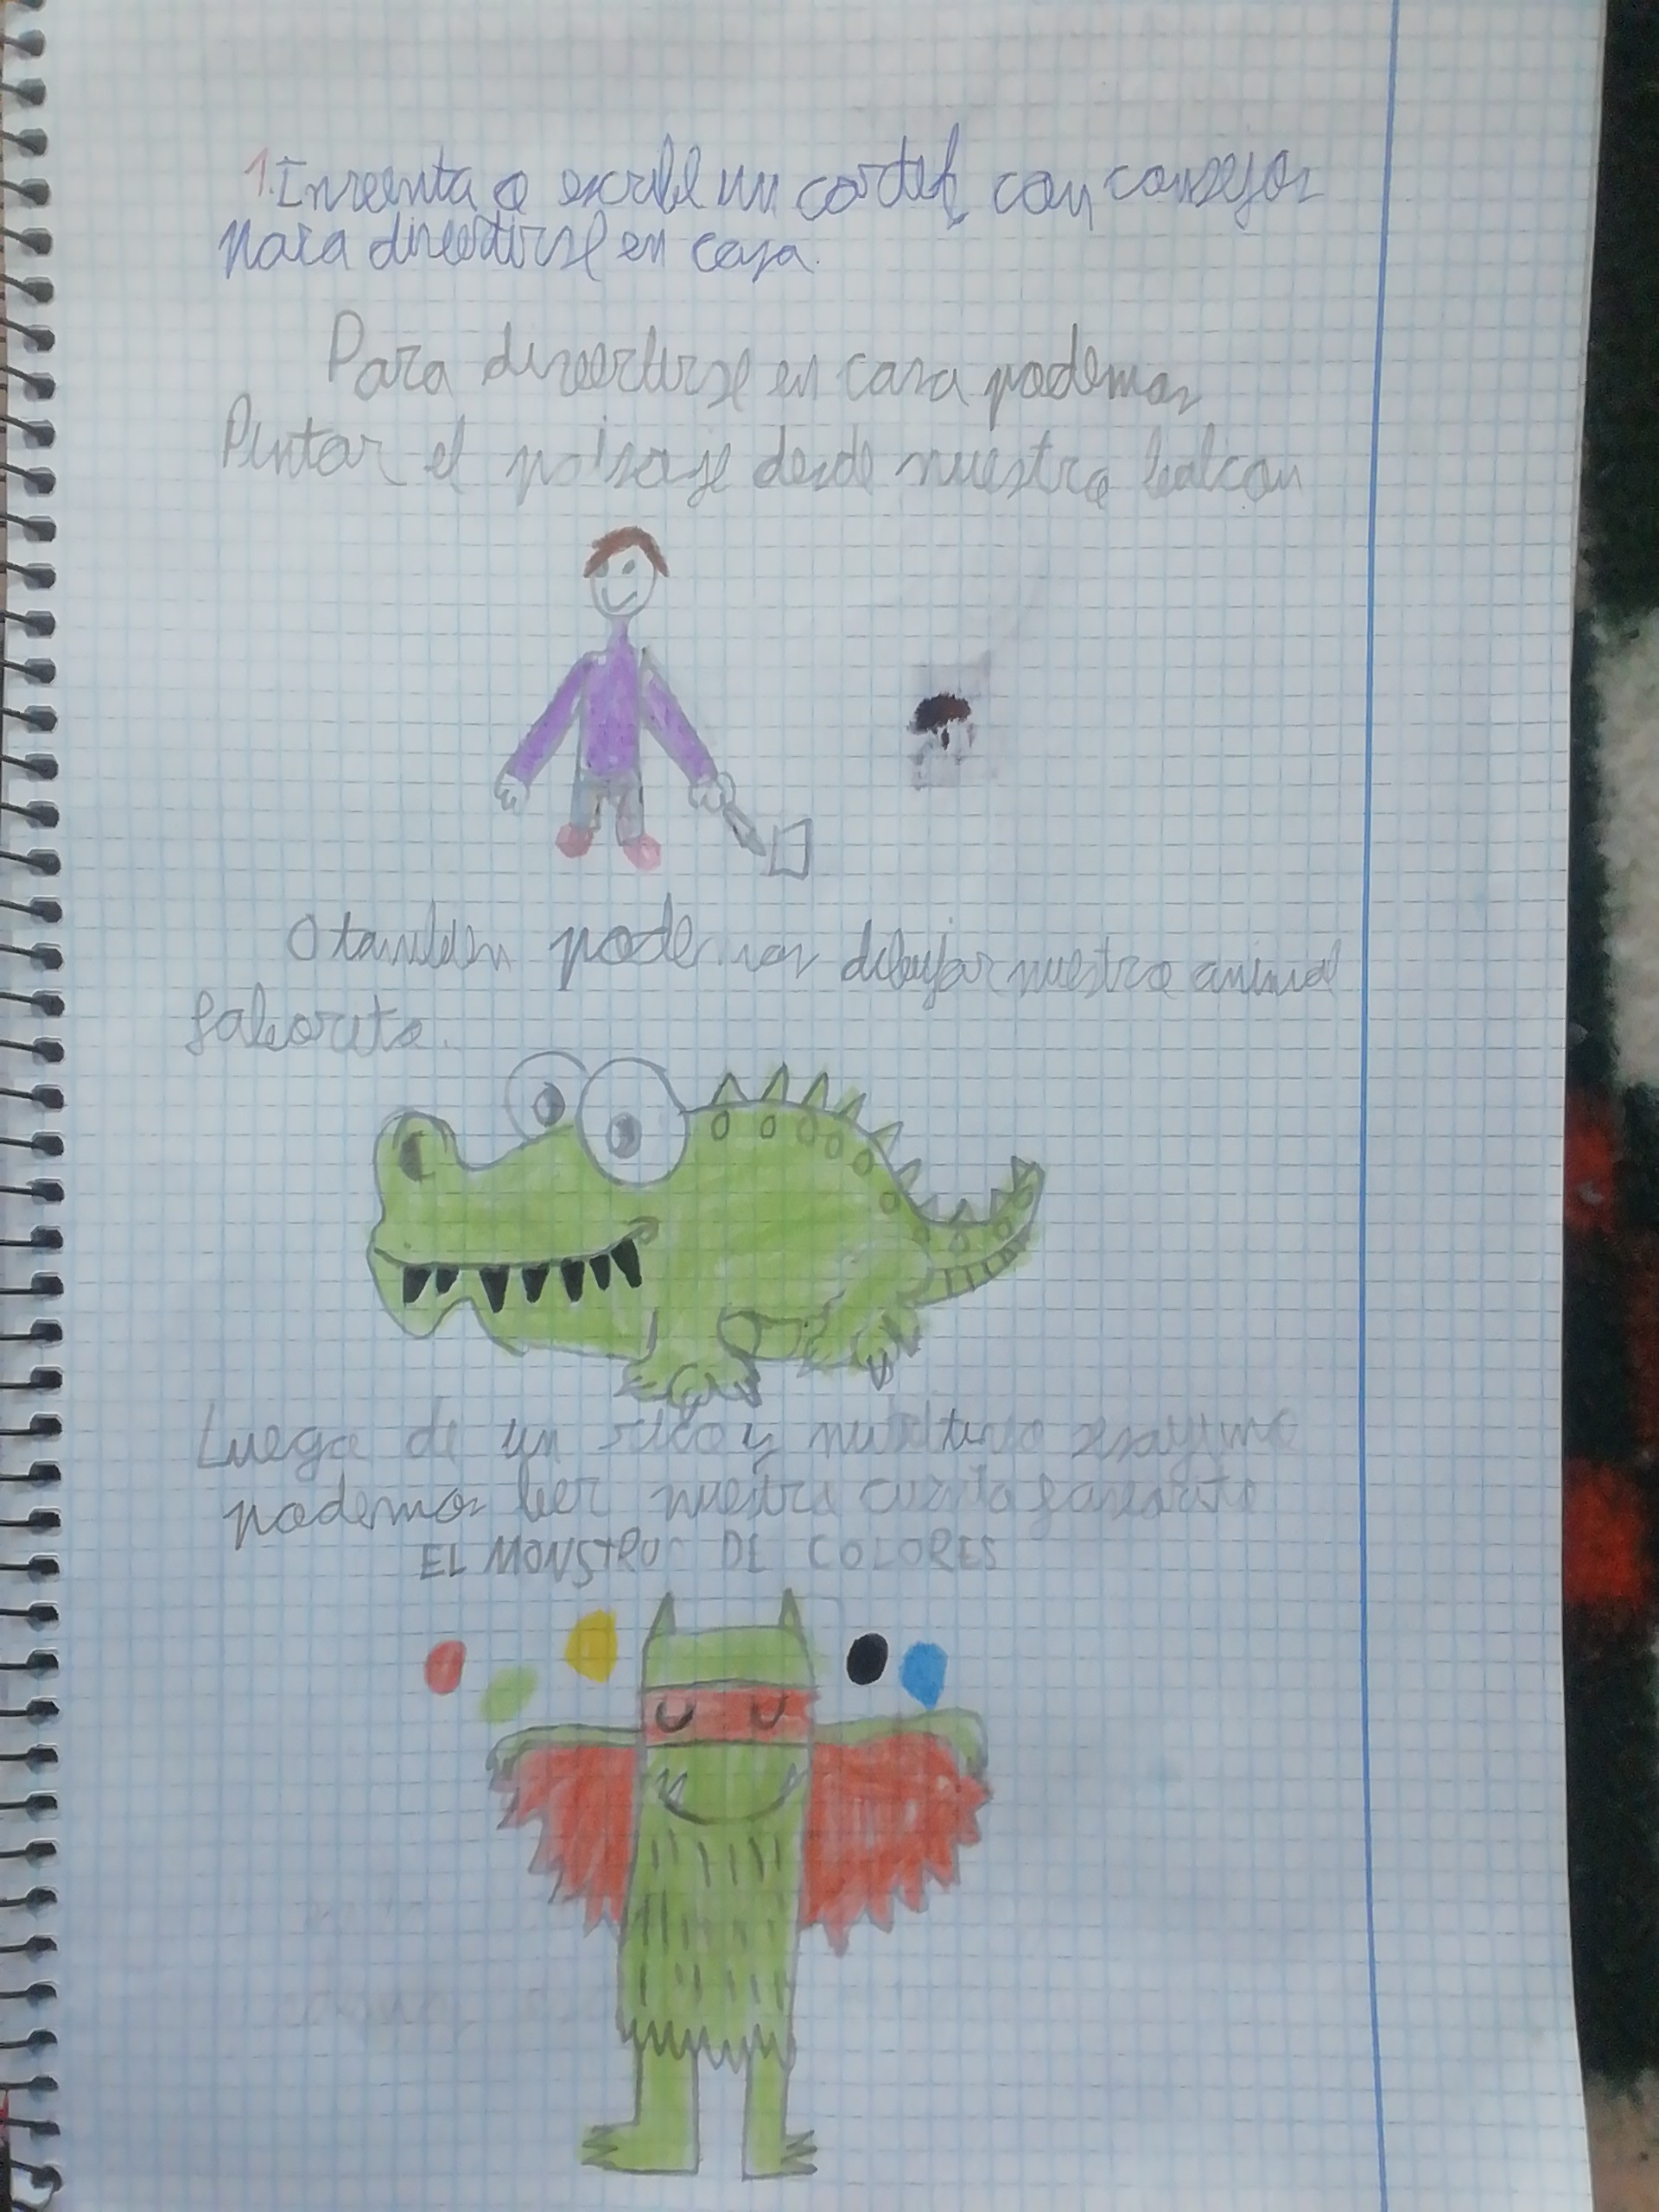 1. Inventa o escribe un cartel, con consejos
para divertirse en casa.
Para divertirse en casa podemos
Pintar el paisaje desde nuestro balcon
O tambien podemos dibujar nuestro animal
faborito.
Luego de un rico y nutritivo desayuno
podemos leer nuestro cuento favorito
EL MONSTRUO DE COLORES